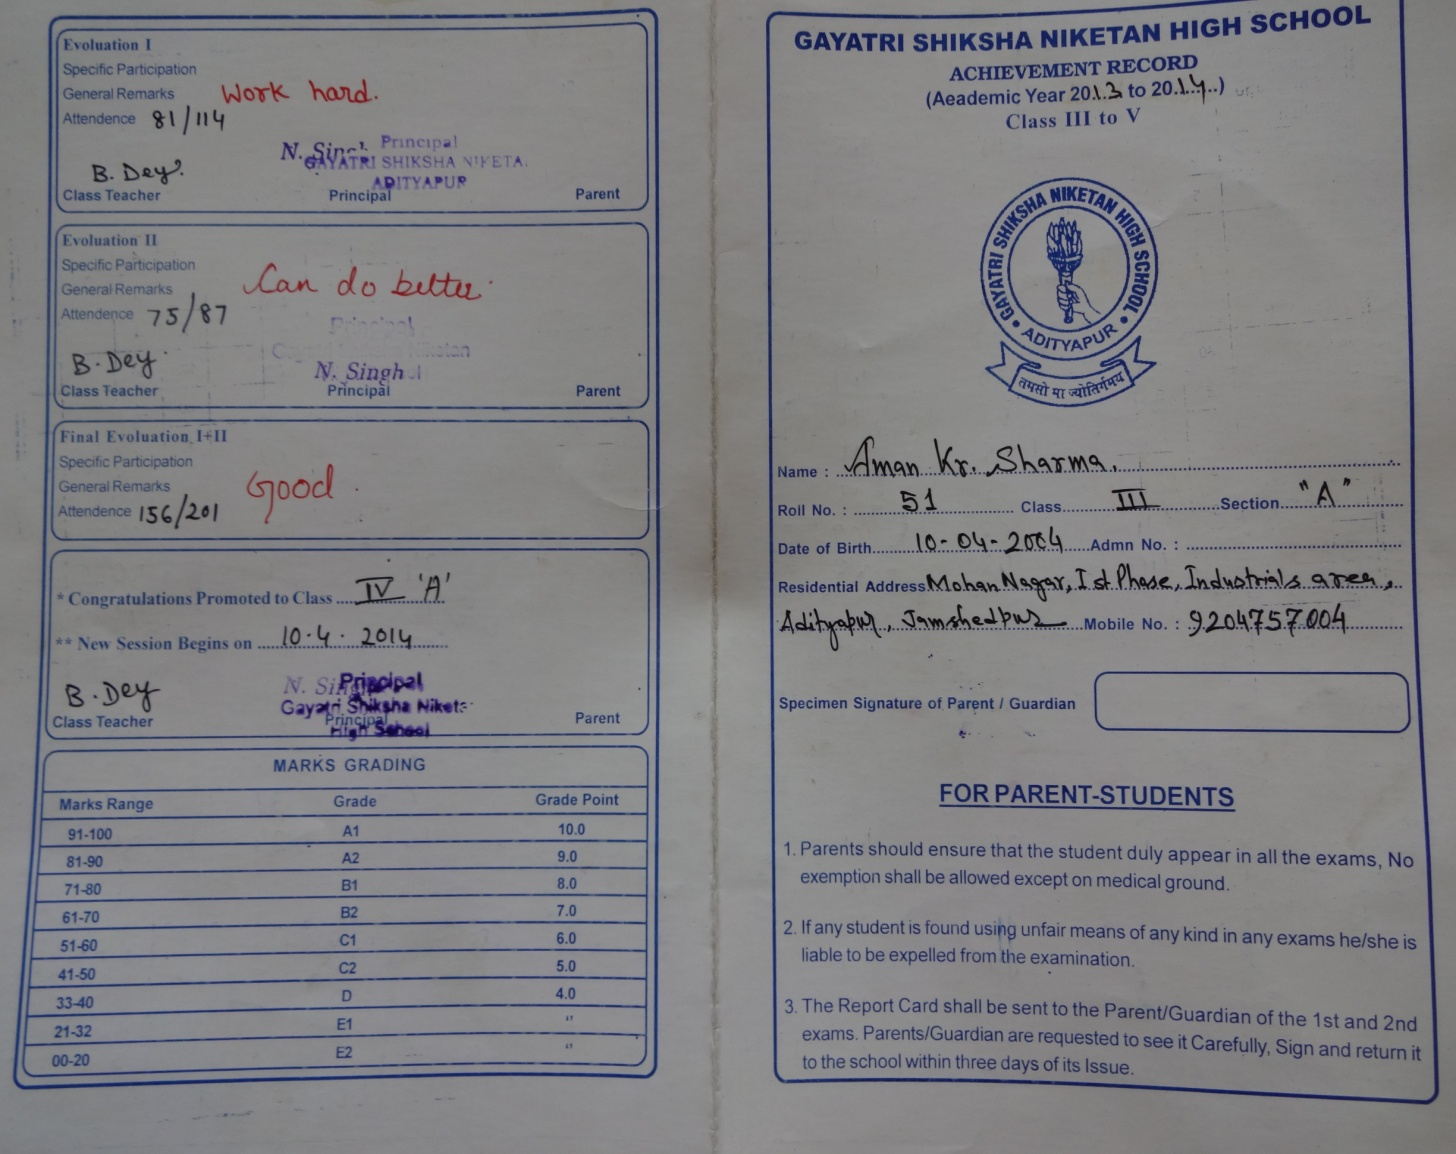 Evoluation I
Specific Participation
General Remarks Work hard.
Attendence 81/114
Principal
N. Singh
GAYATRI SHIKSHA NIKETA
ADITYAPUR
B. Dey
Class Teacher Principal Parent
Evoluation II
Specific Participation
General Remarks Can do better.
Attendence 75/87
Principal
Gayatri Niketan
B. Dey N. Singh
Class Teacher Principal Parent
Final Evoluation I+II
Specific Participation
General Remarks Good
Attendence 156/201
* Congratulations Promoted to Class IV 'A'
** New Session Begins on 10.4.2014
N. Singh Principal
B. Dey Gayatri Shiksha Niket
Class Teacher Principal Parent
High School
MARKS GRADING
Marks Range Grade Grade Point
91-100 A1 10.0
81-90 A2 9.0
71-80 B1 8.0
61-70 B2 7.0
51-60 C1 6.0
41-50 C2 5.0
33-40 D 4.0
21-32 E1 "
00-20 E2 "
GAYATRI SHIKSHA NIKETAN HIGH SCHOOL
ACHIEVEMENT RECORD
(Aeademic Year 2013 to 2014)
Class III to V
GAYATRI SHIKSHA NIKETAN HIGH SCHOOL
ADITYAPUR
तमसो मा ज्योतिर्गमय
Name : Aman Kr. Sharma.
Roll No. : 51 Class III Section "A"
Date of Birth 10-04-2004 Admn No. :
Residential Address Mohan Nagar, Ist Phase, Industrials area,
Adityapur, Jamshedpur Mobile No. : 9204757004
Specimen Signature of Parent / Guardian
FOR PARENT-STUDENTS
1. Parents should ensure that the student duly appear in all the exams, No
exemption shall be allowed except on medical ground.
2. If any student is found using unfair means of any kind in any exams he/she is
liable to be expelled from the examination.
3. The Report Card shall be sent to the Parent/Guardian of the 1st and 2nd
exams. Parents/Guardian are requested to see it Carefully, Sign and return it
to the school within three days of its Issue.